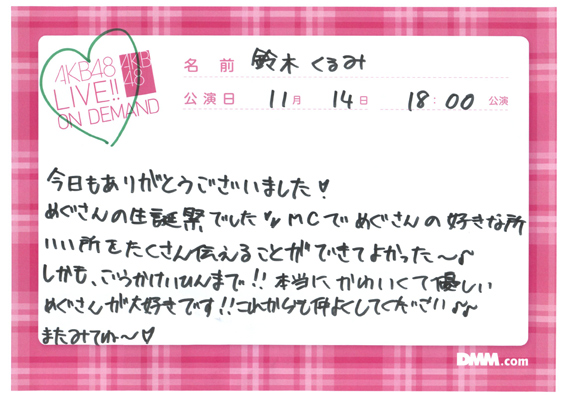 AKB48
LIVE!!
ON DEMAND
AKB
48
名前 鈴木くるみ
公演日 11月 14日 18:00 公演
今日もありがとうございました!
めぐさんの生誕祭でした MCでめぐさんの好きな所
いい所をたくさん伝えることができてよかった〜♪
しかも、ごうかけいひんまで!! 本当にかわいくて優しい
めぐさんが大好きです!!これからも仲よくしてください♪♪
またみてね〜♡
DMM.com